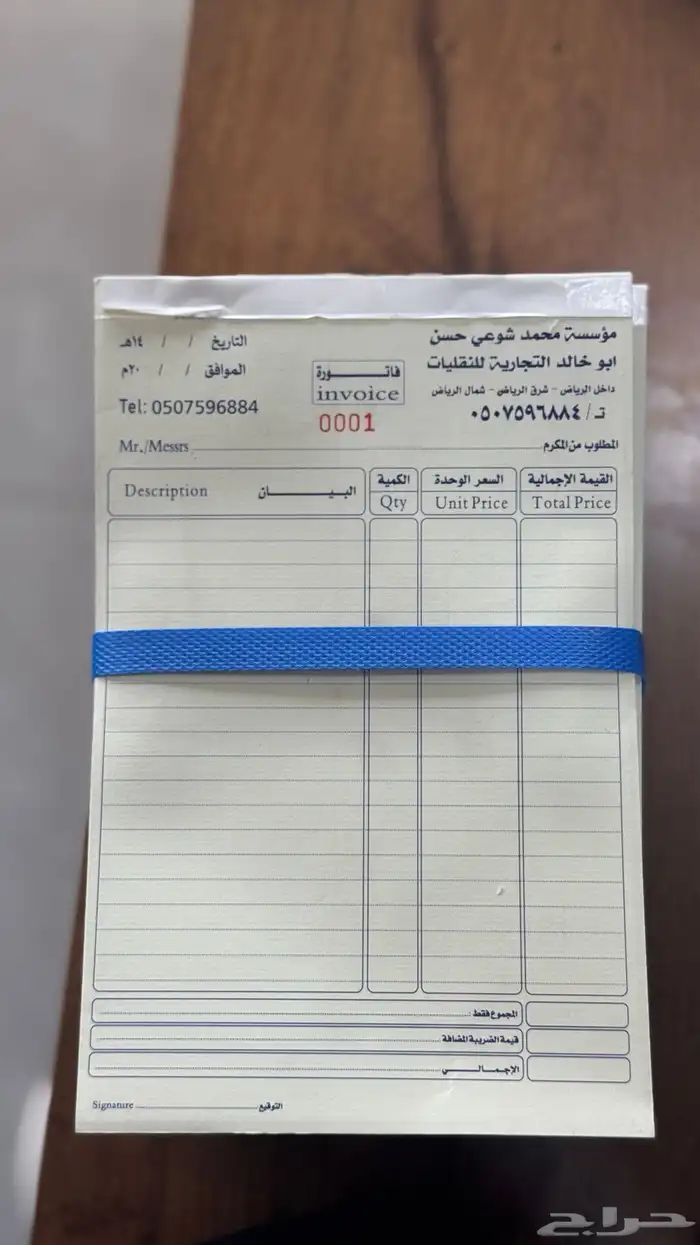 مؤسسة محمد شوعي حسن
ابو خالد التجارية للنقليات
داخل الرياض - شرق الرياض - شمال الرياض
تـ / ٠٥٠٧٥٩٦٨٨٤
فاتـــورة
invoice
0001
التاريخ / / ١٤هـ
الموافق / / ٢٠م
Tel: 0507596884
Mr./Messrs المطلوب من المكرم
القيمة الإجمالية السعر الوحدة الكمية البيـــان
Description Qty Unit Price Total Price
المجموع فقط :
قيمة الضريبة المضافة
الإجمـــالـــي
Signature التوقيع
حراج